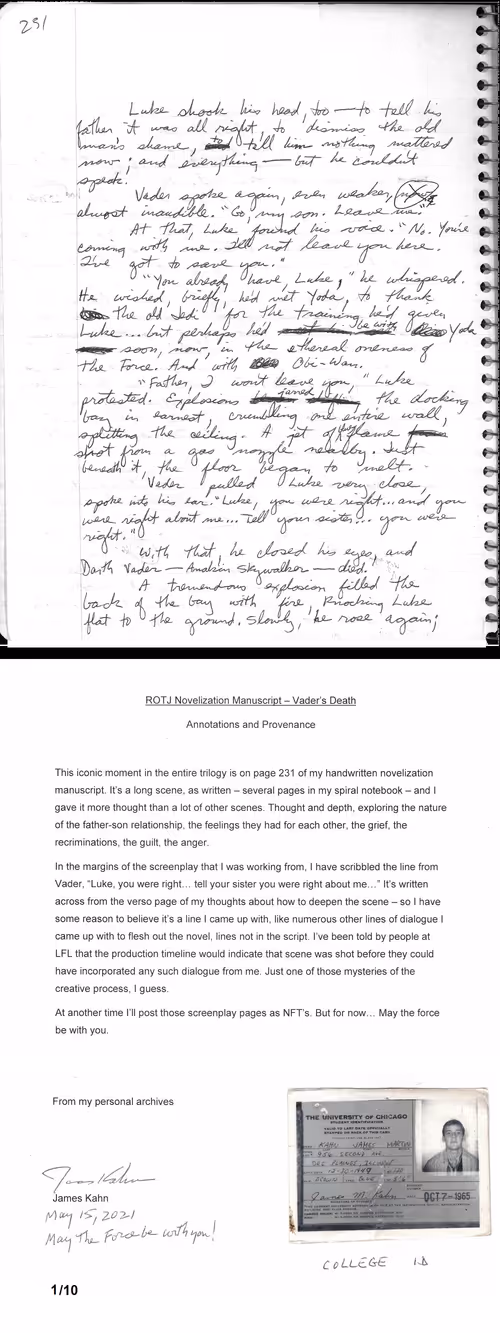 231
Luke shook his head, too — to tell his
father it was all right, to dismiss the old
man's shame, to tell him nothing mattered
now; and everything — but he couldn't
speak.
Vader spoke again, even weaker,
almost inaudible. "Go, my son. Leave me."
At that, Luke found his voice. "No. You're
coming with me. I'll not leave you here.
I've got to save you."
"You already have, Luke," he whispered.
He wished, briefly, he'd met Yoda, to thank
the old Jedi for the training he'd given
Luke... but perhaps he'd be with Yoda
soon, now, in the ethereal oneness of
the Force. And with Obi-Wan.
"Father, I won't leave you," Luke
protested. Explosions jarred the docking
bay in earnest, crumbling one entire wall,
splitting the ceiling. A jet of flame
shot from a gas nozzle nearby. Just
beneath it, the floor began to melt.
Vader pulled Luke very close,
spoke into his ear. "Luke, you were right... and you
were right about me... Tell your sister... you were
right."
With that, he closed his eyes, and
Darth Vader — Anakin Skywalker — died.
A tremendous explosion filled the
back of the bay with fire, knocking Luke
flat to the ground. Slowly, he rose again;
ROTJ Novelization Manuscript – Vader's Death
Annotations and Provenance
This iconic moment in the entire trilogy is on page 231 of my handwritten novelization
manuscript. It's a long scene, as written – several pages in my spiral notebook – and I
gave it more thought than a lot of other scenes. Thought and depth, exploring the nature
of the father-son relationship, the feelings they had for each other, the grief, the
recriminations, the guilt, the anger.
In the margins of the screenplay that I was working from, I have scribbled the line from
Vader, "Luke, you were right… tell your sister you were right about me…" It's written
across from the verso page of my thoughts about how to deepen the scene – so I have
some reason to believe it's a line I came up with, like numerous other lines of dialogue I
came up with to flesh out the novel, lines not in the script. I've been told by people at
LFL that the production timeline would indicate that scene was shot before they could
have incorporated any such dialogue from me. Just one of those mysteries of the
creative process, I guess.
At another time I'll post those screenplay pages as NFT's. But for now… May the force
be with you.
From my personal archives
James Kahn
James Kahn
May 15, 2021
May The Force be with you!
1/10
THE UNIVERSITY OF CHICAGO
STUDENT IDENTIFICATION
KAHN JAMES MARTIN
James M. Kahn
OCT 7 - 1965
COLLEGE ID